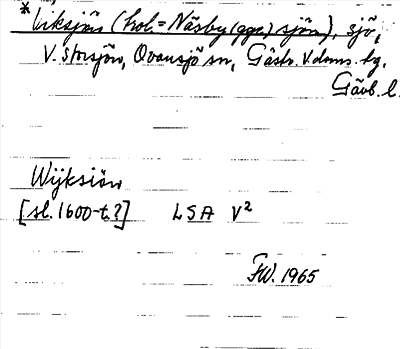 * Viksjön (hol. = Näsby(gge) sjön), sjö,
V. Storsjön, Ovansjö sn, Gästr. V. doms. tg.
Gävb. l.
Wijksiön
[sl. 1600-t.?] LSA V²
FW. 1965